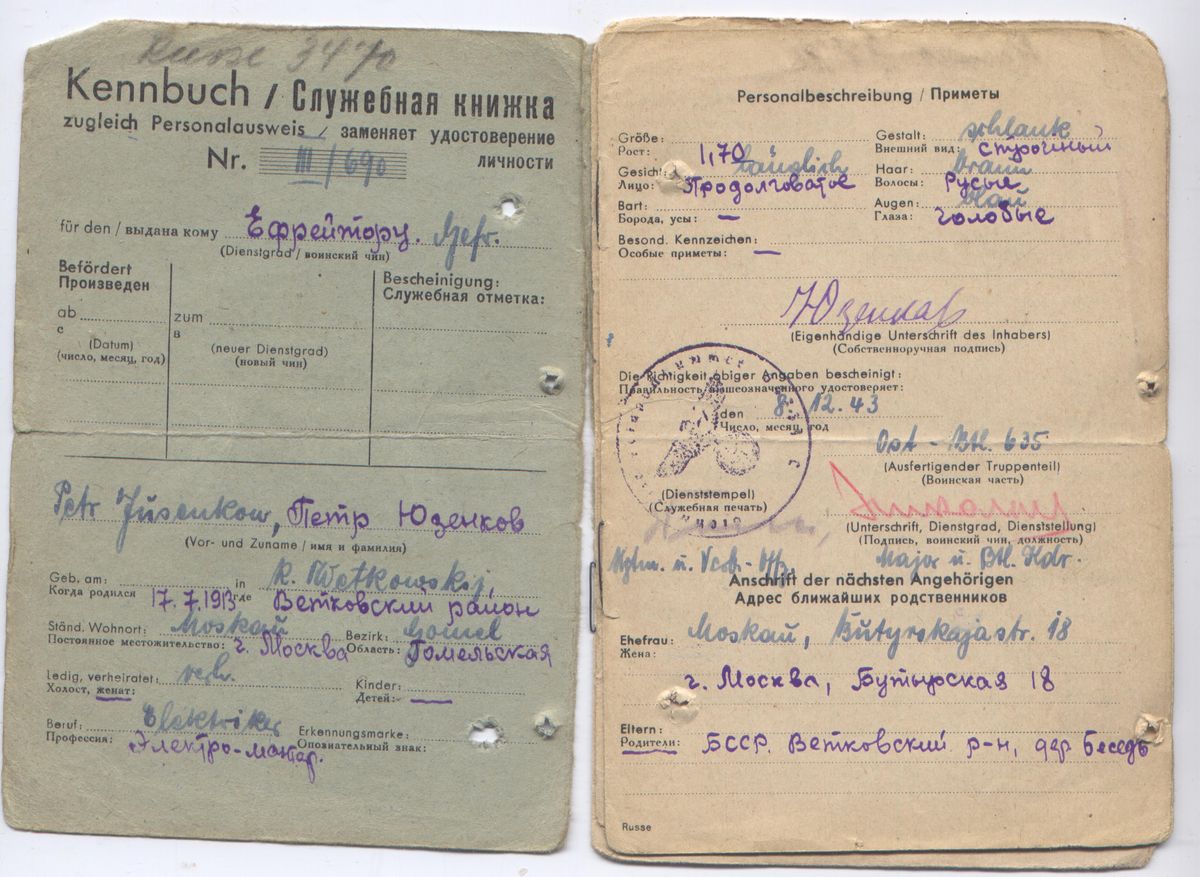 Russe 34 70
Kennbuch / Служебная книжка
zugleich Personalausweis / заменяет удостоверение
Nr. III/690 личности
für den / выдана кому Ефрейтору. Gefr.
(Dienstgrad / воинский чин)
Befördert
Произведен
Bescheinigung:
Служебная отметка:
ab zum
с в
(Datum) (neuer Dienstgrad)
(число, месяц, год) (новый чин)
Petr Jusenkow, Петр Юзенков
(Vor- und Zuname / имя и фамилия)
Geb. am: in R. Wetkowskij
Когда родился 17.7.1913 где Ветковский район
Ständ. Wohnort: Moskau Bezirk: Gomel
Постоянное местожительство: г. Москва Область: Гомельская
Ledig, verheiratet: verh. Kinder:
Холост, женат: Детей: —
Beruf: Elektriker Erkennungsmarke:
Профессия: Электро-монтер. Опознательный знак:
Personalbeschreibung / Приметы
Größe: Gestalt: schlank
Рост: 1,70 Внешний вид: строчный
Gesicht: länglich Haar: braun
Лицо: Продолговатое Волосы: Русые
Bart: Augen: blau
Борода, усы: — Глаза: голобые
Besond. Kennzeichen:
Особые приметы: —
Юзенков
(Eigenhändige Unterschrift des Inhabers)
(Собственноручная подпись)
Die Richtigkeit obiger Angaben bescheinigt:
Правильность вышеозначенного удостоверяет:
den 8. 12. 43
Число, месяц, год
Ost - Btl. 635
(Ausfertigender Truppenteil)
(Воинская часть)
(Dienststempel)
(Служебная печать)
(Unterschrift, Dienstgrad, Dienststellung)
(Подпись, воинский чин, должность)
Major u. Btl. Kdr.
Anschrift der nächsten Angehörigen
Адрес ближайших родственников
Ehefrau: Moskau, Butyrskajastr. 18
Жена:
г. Москва, Бутырская 18
Eltern:
Родители: БССР. Ветковский р-н, дер Беседь
Russe